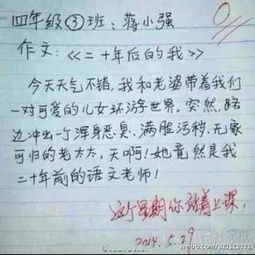 四年级③班、蒋小强
0
作文:《二十年后的我》
今天天气不错,我和老婆带着我们
一对可爱的儿女环游世界。突然,路
边冲出一个浑身恶臭、满脸污秽、无家
可归的老太太,天啊!她竟然是我
二十年前的语文老师!
这个星期你站着上课!
2014.5.29